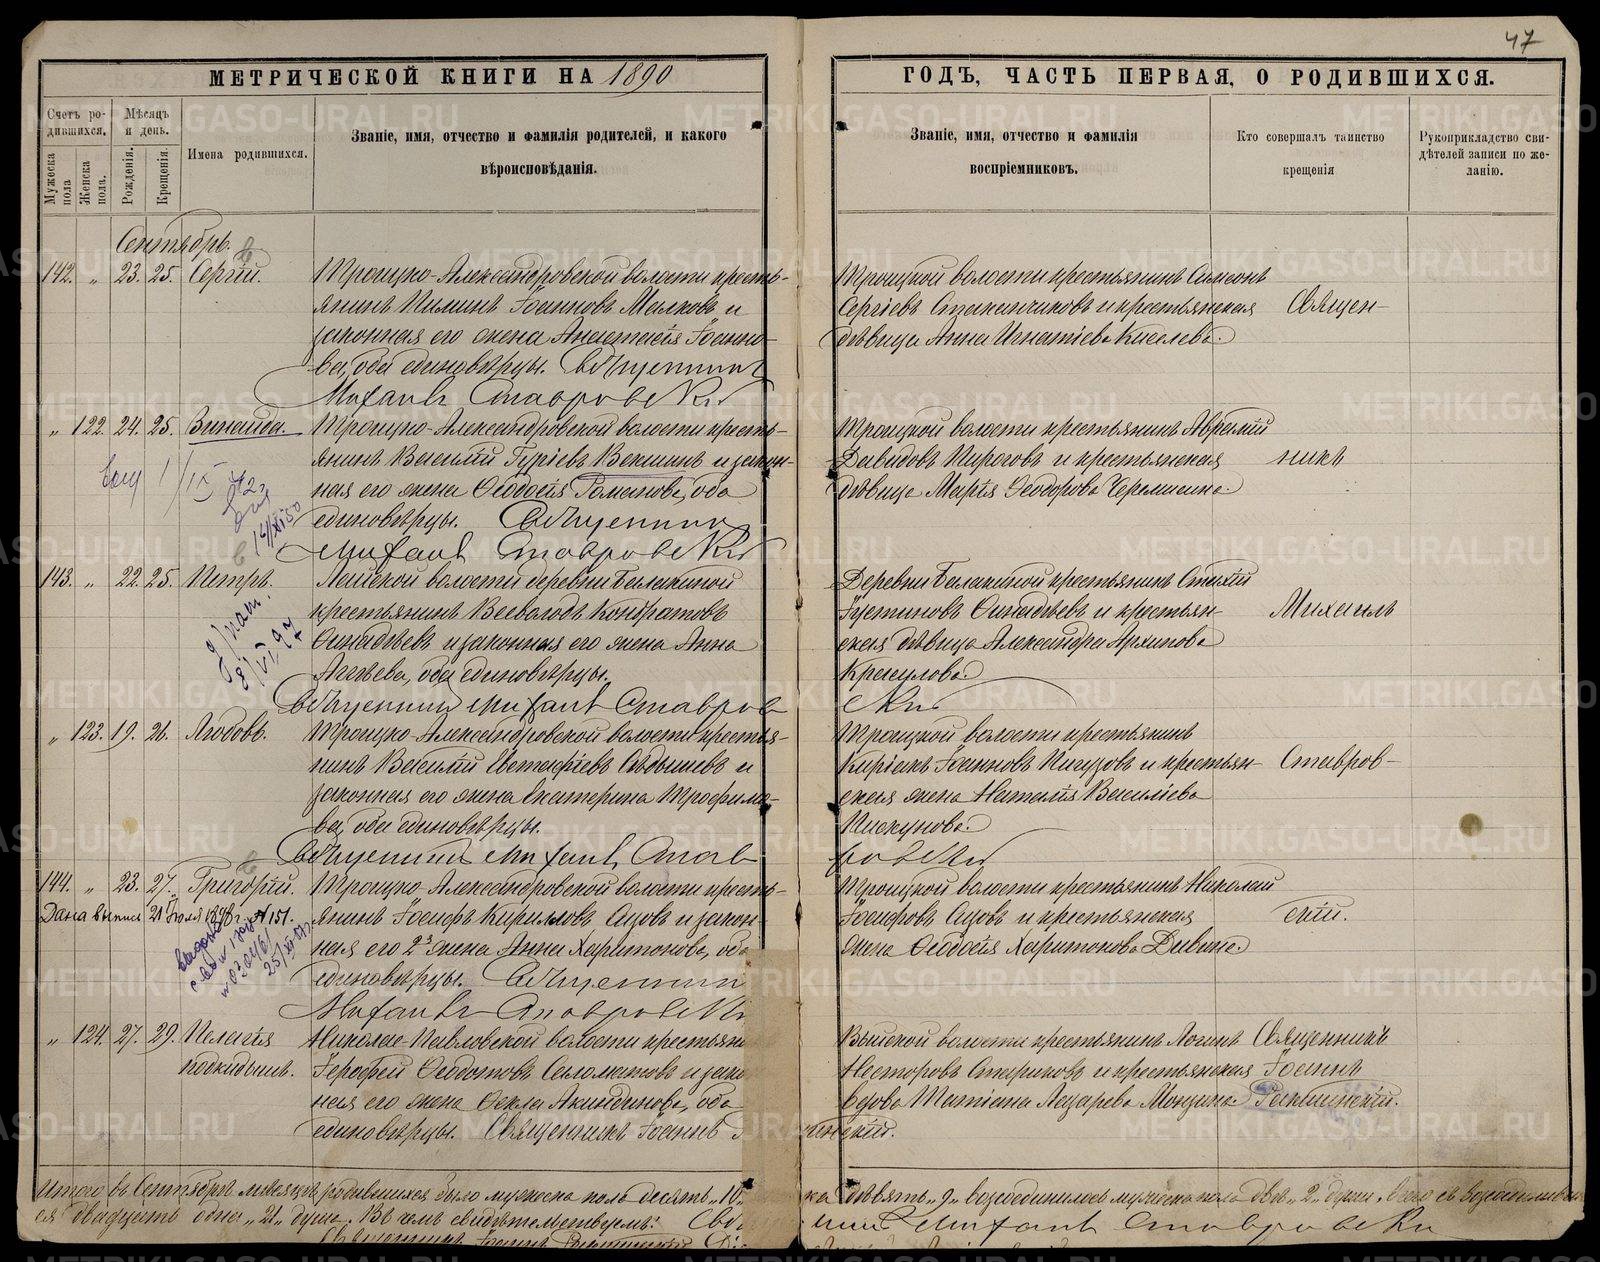 47
МЕТРИЧЕСКОЙ КНИГИ НА 1890
ГОДЪ, ЧАСТЬ ПЕРВАЯ, О РОДИВШИХСЯ.
Счетъ ро-
дившихся.
Мужеска пола
Женска пола.
Мѣсяцъ
и день.
Рожденія.
Крещенія.
Имена родившихся.
Званіе, имя, отчество и фамилія родителей, и какого
вѣроисповѣданія.
Званіе, имя, отчество и фамилія
воспріемниковъ.
Кто совершалъ таинство
крещенія
Рукоприкладство сви-
дѣтелей записи по же-
ланію.
Сентябрь.
142. „ 23. 25. Сергій.
Троицко-Александровской волости кресть-
янинъ Пименъ Іоанновъ Малковъ и
законная его жена Анастасія Іоанно-
ва, оба единовѣрцы. Священникъ
Михаилъ Ставровскій
Троицкой волости крестьянинъ Симеонъ
Сергіевъ Стаканчиковъ и крестьянская
дѣвица Анна Игнатіева Киселева.
Священ-
„ 122. 24. 25. Зинаида.
Троицко-Александровской волости кресть-
янинъ Василій Гуріевъ Векшинъ и закон-
ная его жена Ѳеодосія Романова, оба
единовѣрцы. Священникъ
Михаилъ Ставровскій
Троицкой волости крестьянинъ Аврамій
Давидовъ Пироговъ и крестьянская
дѣвица Марія Ѳеодорова Черемисина.
никъ
143. „ 22. 25. Петръ.
волости деревни Балакиной
крестьянинъ Всеволодъ Кондратовъ
и законная его жена Анна
Аггѣева, оба единовѣрцы.
Священникъ Михаилъ Ставров
Деревни Балакиной крестьянинъ
и крестьян-
ская дѣвица Александра Архипова
скій
Михаилъ
„ 123. 19. 26. Любовь.
Троицко-Александровской волости крестья-
нинъ Василій Евстафіевъ Сѣдышевъ и
законная его жена Екатерина Трофимо-
ва, оба единовѣрцы.
Священникъ Михаилъ Став
Троицкой волости крестьянинъ
Киріакъ Іоанновъ Пигузовъ и крестьян-
ская жена Наталія Василіева
Пискунова.
ровскій
Ставров-
144. „ 23. 27. Григорій.
Дана выпись 21 Іюля 1898 г. № 151.
Троицко-Александровской волости кресть-
янинъ Іосифъ Кирилловъ Сизовъ и закон-
ная его 2я жена Анна Харитонова, оба
единовѣрцы. Священникъ
Михаилъ Ставровскій
Троицкой волости крестьянинъ Николай
Іосифовъ Сизовъ и крестьянская
жена Ѳеодосія Харитонова Дивина.
скій.
„ 124. 27. 29. Пелагія
подкидышъ.
Николае-Павловской волости крестьяни
Іерофей Ѳеодотовъ Саломатовъ и зако
ная его жена Ѳекла Акиндинова, оба
единовѣрцы. Священникъ Іоаннъ
Выйской волости крестьянинъ Логинъ
Несторовъ Стариковъ и крестьянская
вдова Татіана Лазарева Мокина.
Священникъ
Іоаннъ
Итого въ Сентябрѣ мѣсяцѣ родившихся было мужеска пола десять „10„
ка девять „9„ возсоединилось мужеска пола двѣ „2„ души. Всего съ
ся двадцать одна „21„ душа. Въ чемъ свидѣтельствуемъ: Священ
никъ Михаилъ Ставровскій
METRIKI.GASO-URAL.RU